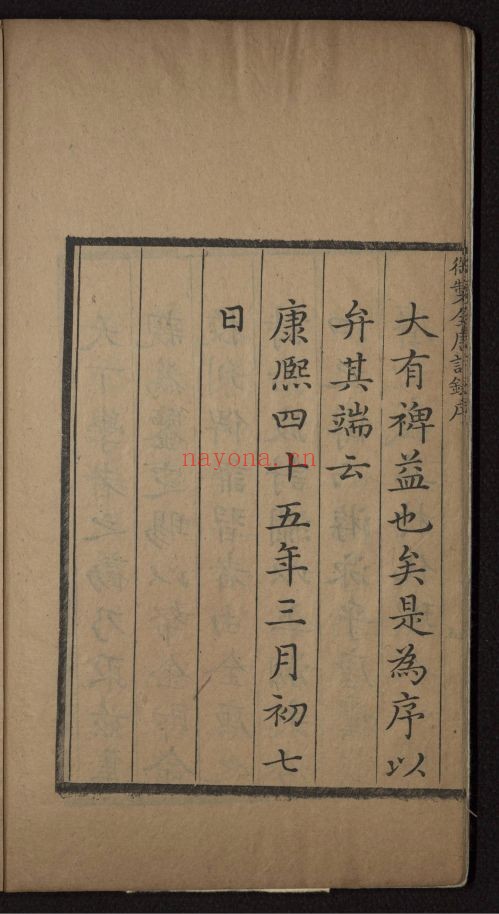 大有禆益也矣是為序以
弁其端云
康熈四十五年三月初七
日
御製全唐詩錄序
nayona.cn